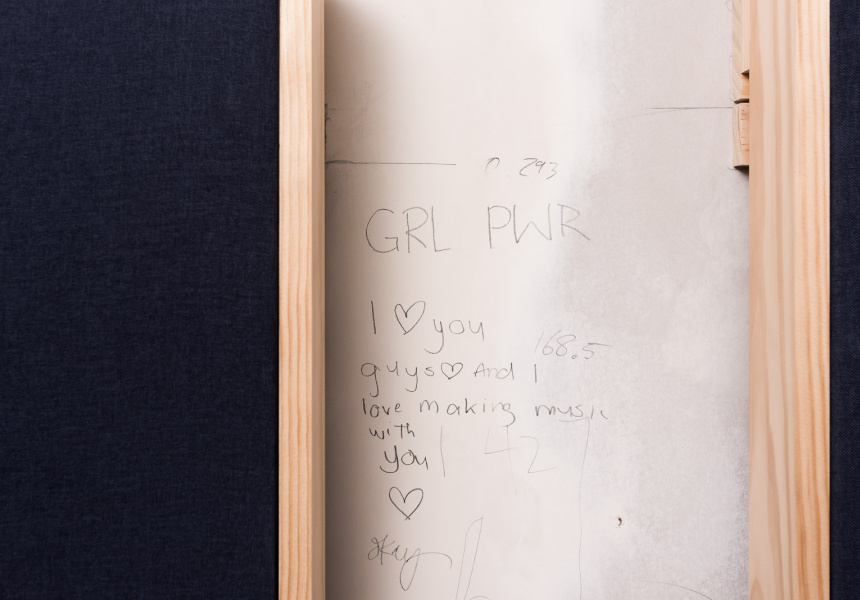 293
GRL PWR
I ♡ you
168.5
guys ♡ And I
love making music
with
you
42
♡